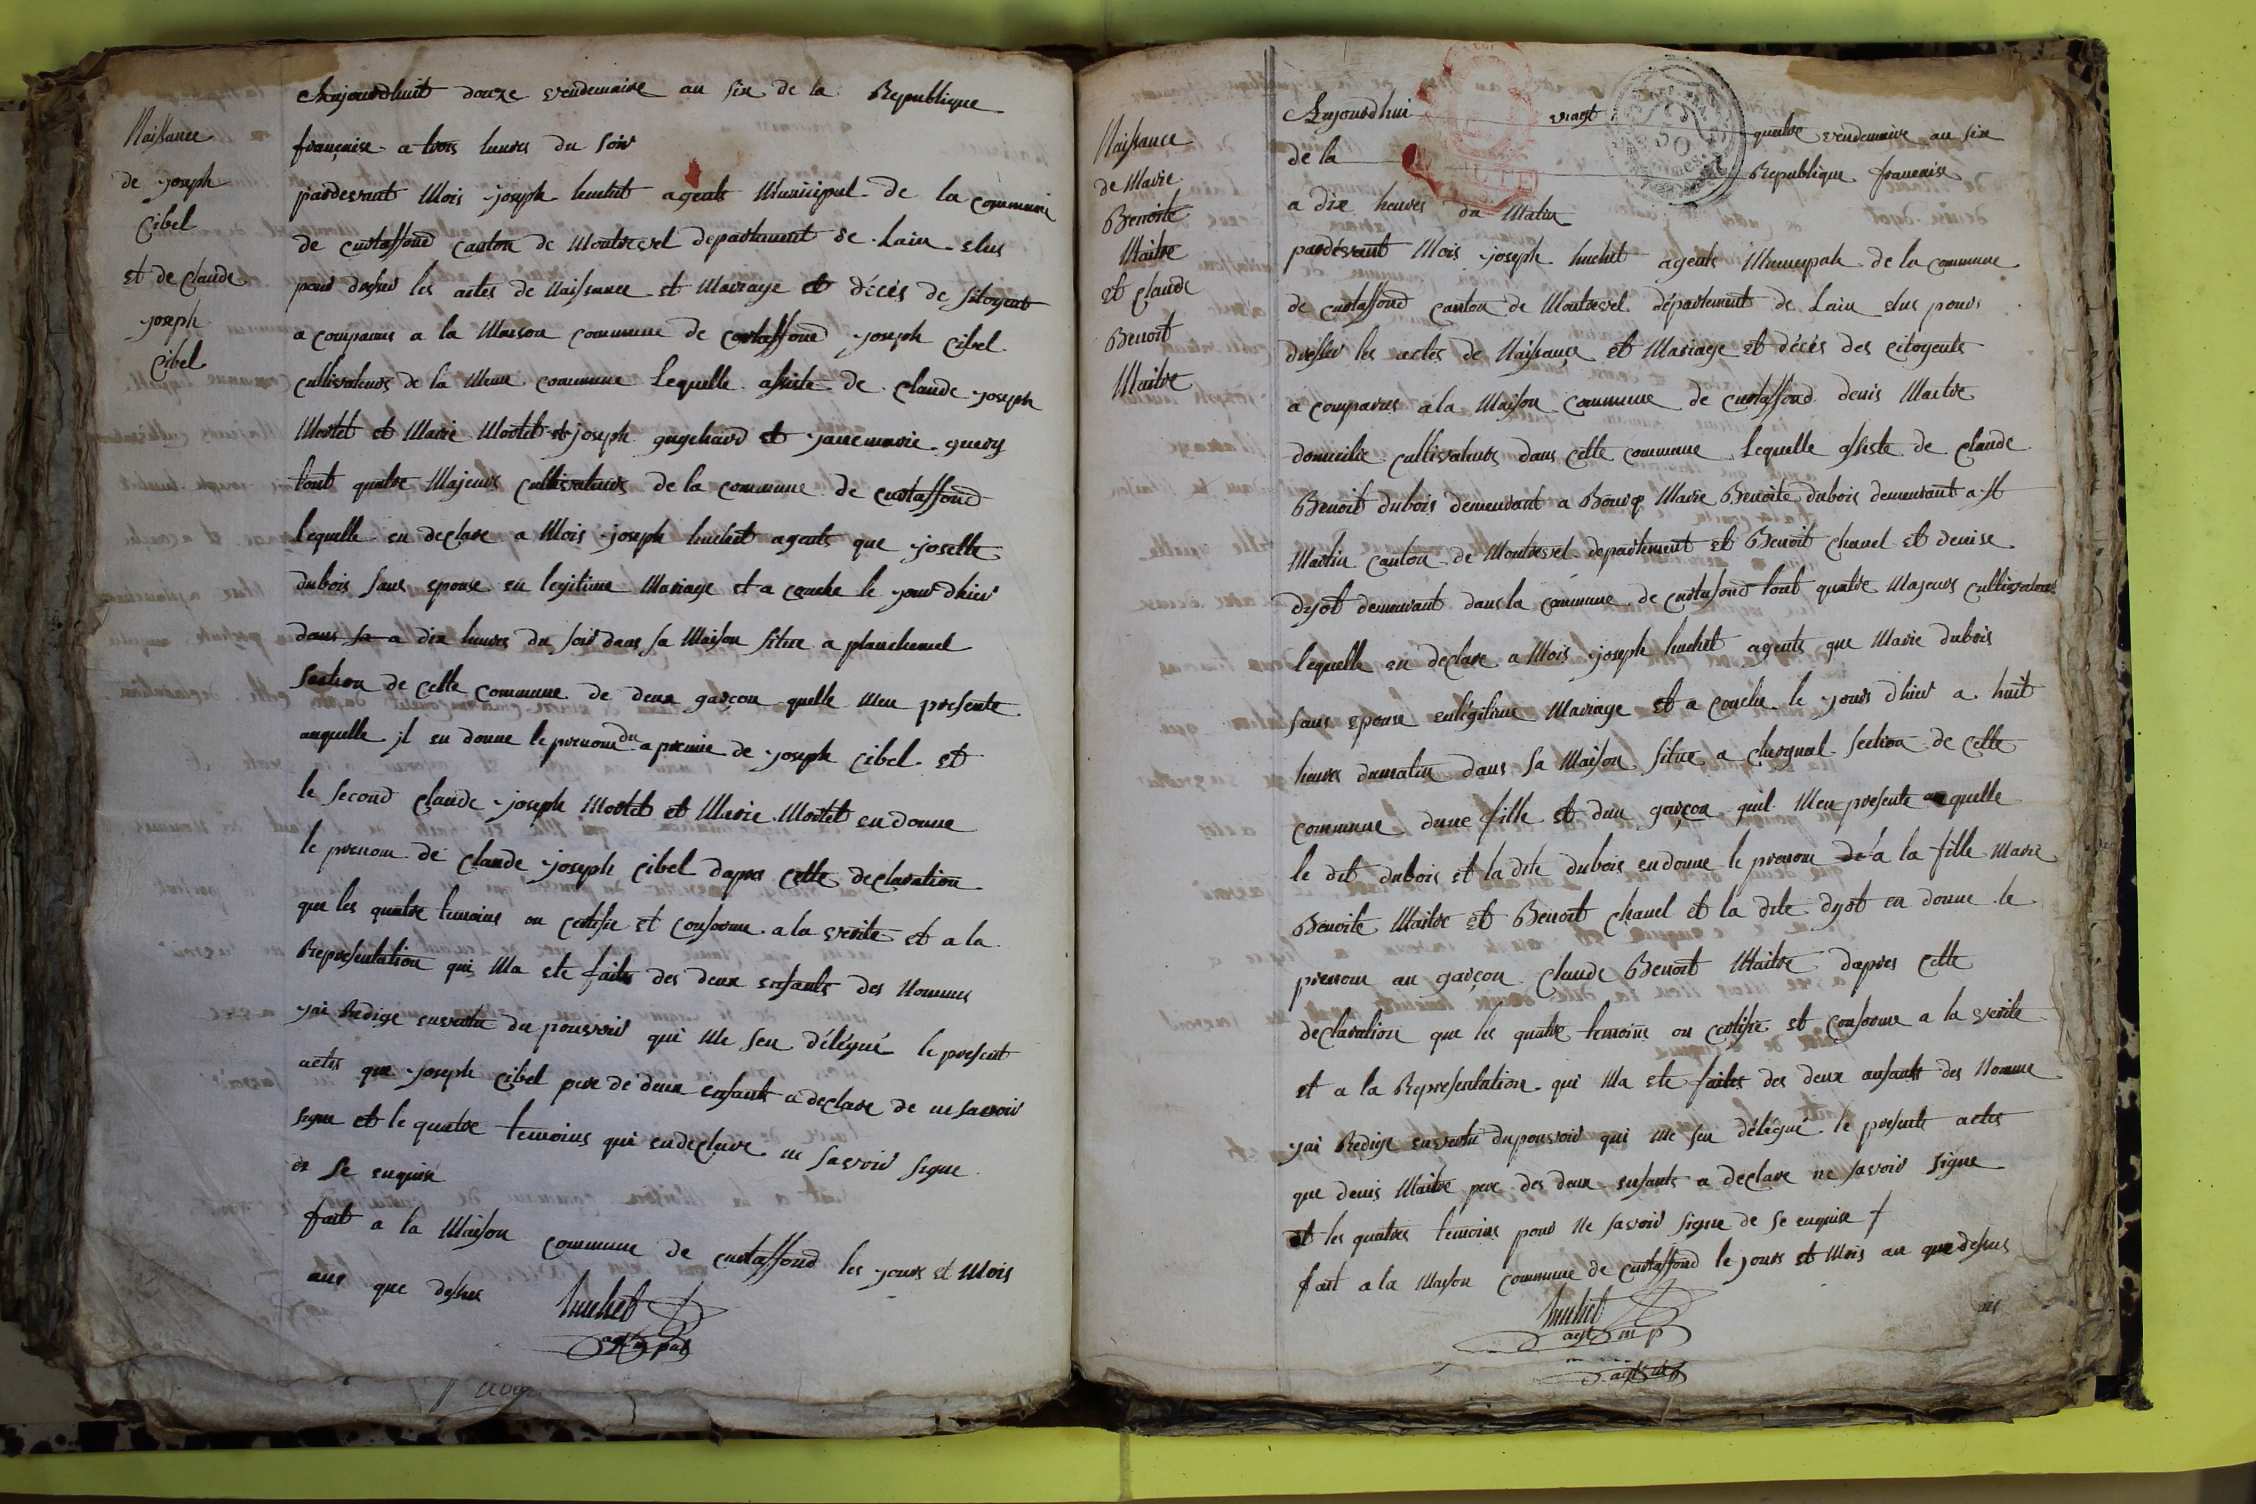 Naissance
de joseph
Cibel
et de Claude
joseph
Cibel
Aujourdhuit douze vendemaire an six de la Republique
françaisse a trois heures du soir
pardevant Mois joseph huchet agents Municipal de la commune
de curtaffond canton de Montrevel departement de Lain elus
pour dresser les actes de Naissance et Mariage et décès de sitoyent
a comparus a la Maison commune de curtaffond joseph Cibel
cultivateurs de la Meme commune Lequelle assiste de Claude joseph
Mortel et Marie Mortel et joseph guychard et jannemarie guery
tout quatre Majeurs cultivateurs de la commune de curtaffond
lequelle en declare a Mois joseph huchet agents que josette
dubois sans epouse en legitime Mariage et a couche le jour dhier
dans sa a dix heures du soir dans sa Maison situe a planchemel
section de cette commune de deux garçon quelle Men presente
auquelle jl en donne le prenom du a premie de joseph Cibel et
le second Claude joseph Mortel et Marie Mortel en donne
le prenom de Claude joseph Cibel dapres cette declaration
que les quatre temoins on certifie et conforme a la verite et a la
Representation qui Ma ete faite des deux enfants des Nommes
jai Redige envertu du pouvoir qui Me seu délégué le present
actes que joseph Cibel pere de deux enfants a declare de ne savoir
signe et le quatre temoins qui en declare ne savoir signe
de se enquise
fait a la Maison commune de curtaffond les jours et Mois
ans que dessus
huchet
agt mpal
Naissance
de Marie
Benoite
Maitre
et Claude
Benoit
Maitre
Aujourdhui vingt quatre vendemaire an six
de la Republique francaise
a dix heures du Matin
pardevant Mois joseph huchet agents Municipale de la commune
de curtaffond canton de Montrevel département de Lain elus pour
dresser les actes de Naissance et Mariage et décès des citoyents
a comparus a la Maison commune de curtaffond denis Maitre
domicilie cultivateurs dans cette commune Lequelle assiste de Claude
Benoit dubois demeurant a Bourq Marie Benoite dubois demeurant a st
Martin canton de Montrevel departement et Benoit Chanel et denise
dyot demeurant dans la commune de curtafond tout quatre Majeurs cultivateurs
lequelle en declare a Mois joseph huchet agents que Marie dubois
sans epouse enlégitime Mariage et a couche le jours dhier a huit
heures dumatin dans sa Maison situe a Chevignal section de cette
commune dune fille et dun garçon quil Men presente auquelle
le dit dubois et la dite dubois en donne le prenom de a la fille Marie
Benoite Maitre et Benoit Chanel et la dite dyot en donne le
prenom au garçon Claude Benoit Maitre dapres cette
declaration que les quatre temoins on certifie et conforme a la verite
et a la Representation qui Ma ete faites des deux anfants des Nomme
jai Redige envertu dupouvoir qui Me seu délégué le presente actes
que denis Maitre pere des deux enfants a declare ne savoir signe
et les quatres temoins pour Ne savoir signe de se enquise
fait a la Maison commune de curtaffond le jours et Mois an que dessus
huchet
agt mp
agt mp